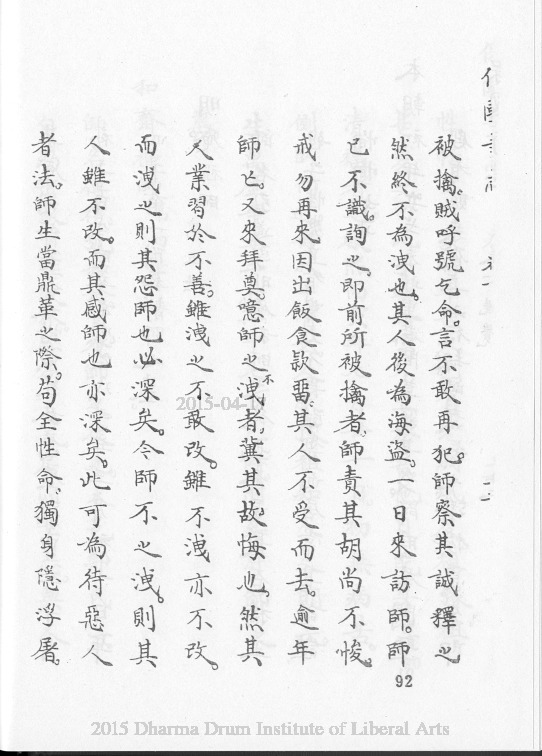 被擒。賊呼號乞命。言不敢再犯。師察其誠釋之
然終不為洩也。其人後為海盜。一日來訪師。師
已不識。詢之。即前所被擒者。師責其胡尚不悛。
戒勿再來因出飯食款畱。其人不受而去。逾年
師亡。又來拜奠。噫師之不洩者。冀其故悔也。然其
人業習於不善。雖洩之不敢改。雖不洩亦不改。
而洩之則其怨師也必深矣。今師不之洩。則其
人雖不改。而其感師也亦深矣。此可為待惡人
者法。師生當鼎革之際。苟全性命。獨身隱浮屠。
92
2015-04-1
2015 Dharma Drum Institute of Liberal Arts